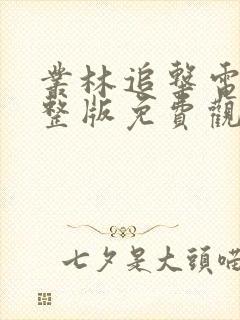 叢林追擊電
整版免費觀
七夕是大頭喵